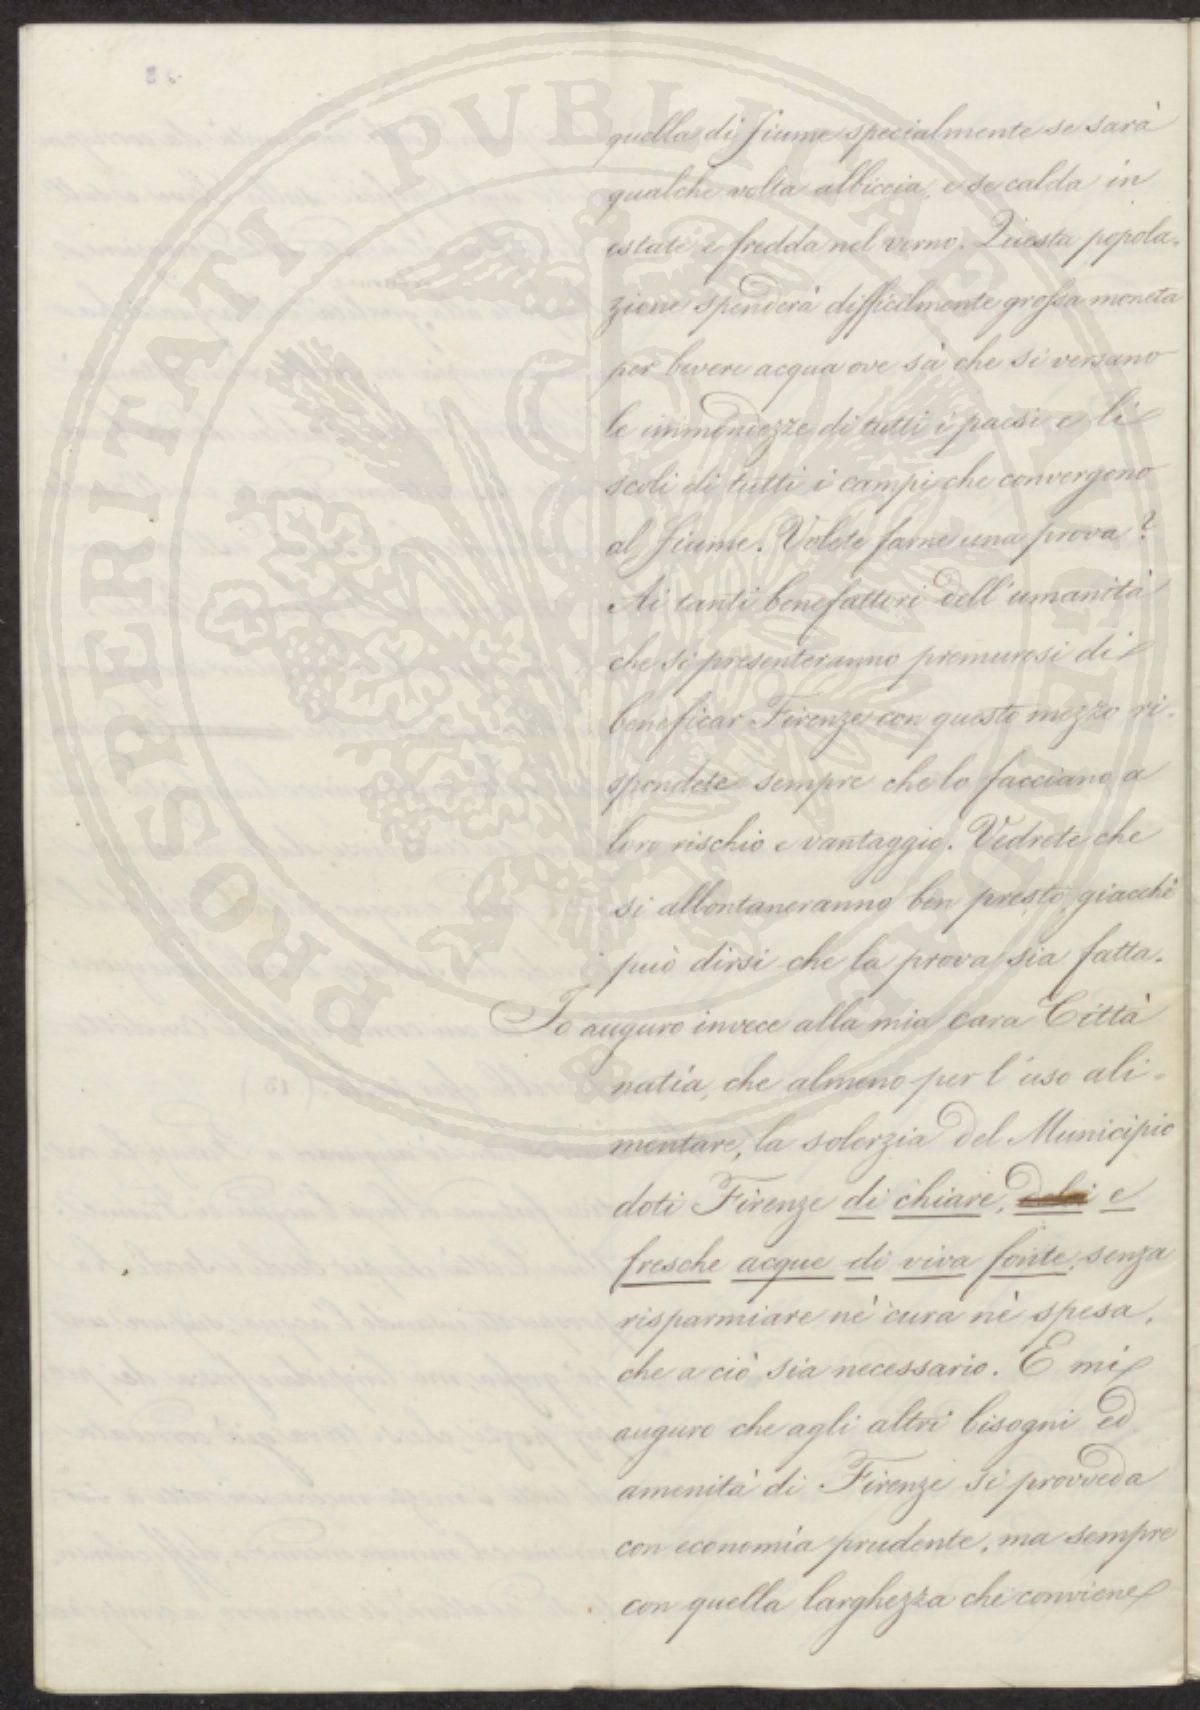 PROSPERITATI PVBLICAE AVGENDAE
quella di fiume specialmente se sarà
qualche volta albiccia, e se calda in
estate e fredda nel verno. Questa popola-
zione spenderà difficilmente grossa moneta
per bevere acqua ove sà che si versano
le immondezze di tutti i paesi e li
scoli di tutti i campi che convergono
al fiume. Volete farne una prova?
Ai tanti benefattori dell'umanità
che si presenteranno premurosi di
beneficar Firenze con questo mezzo ri-
spondete sempre che lo facciano a
loro rischio e vantaggio. Vedrete che
si allontaneranno ben presto, giacchè
può dirsi che la prova sia fatta.
Io auguro invece alla mia cara Città
natìa, che almeno per l'uso ali-
mentare, la solerzia del Municipio
doti Firenze di chiare, dolci e
fresche acque di viva fonte, senza
risparmiare nè cura nè spesa,
che a ciò sia necessario. E mi
auguro che agli altri bisogni ed
amenità di Firenze si provveda
con economia prudente, ma sempre
con quella larghezza che conviene